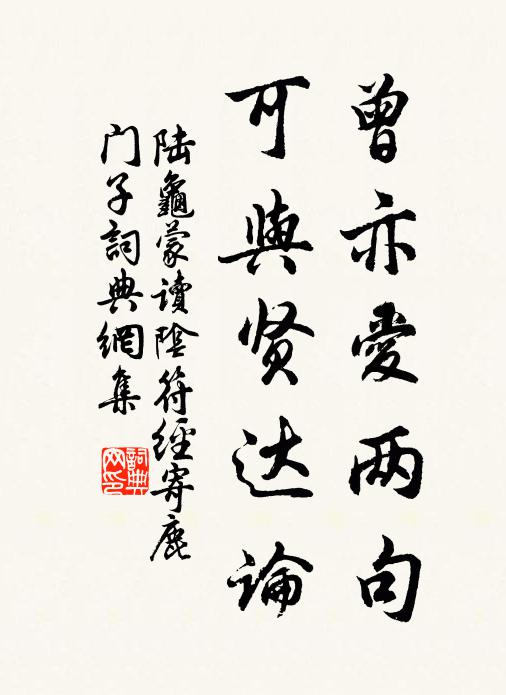 曾亦愛两句
可與贤达論
陆龜蒙讀陰符經寄鹿
门子詞典網集
詞典网印